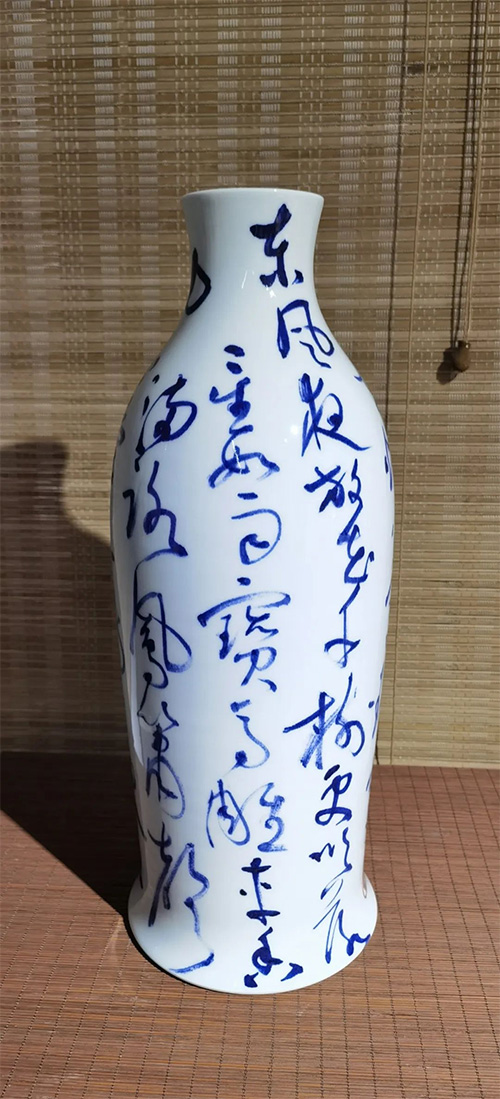 东风夜放花千树更吹落
星如雨寶马雕车香
满路鳳箫聲